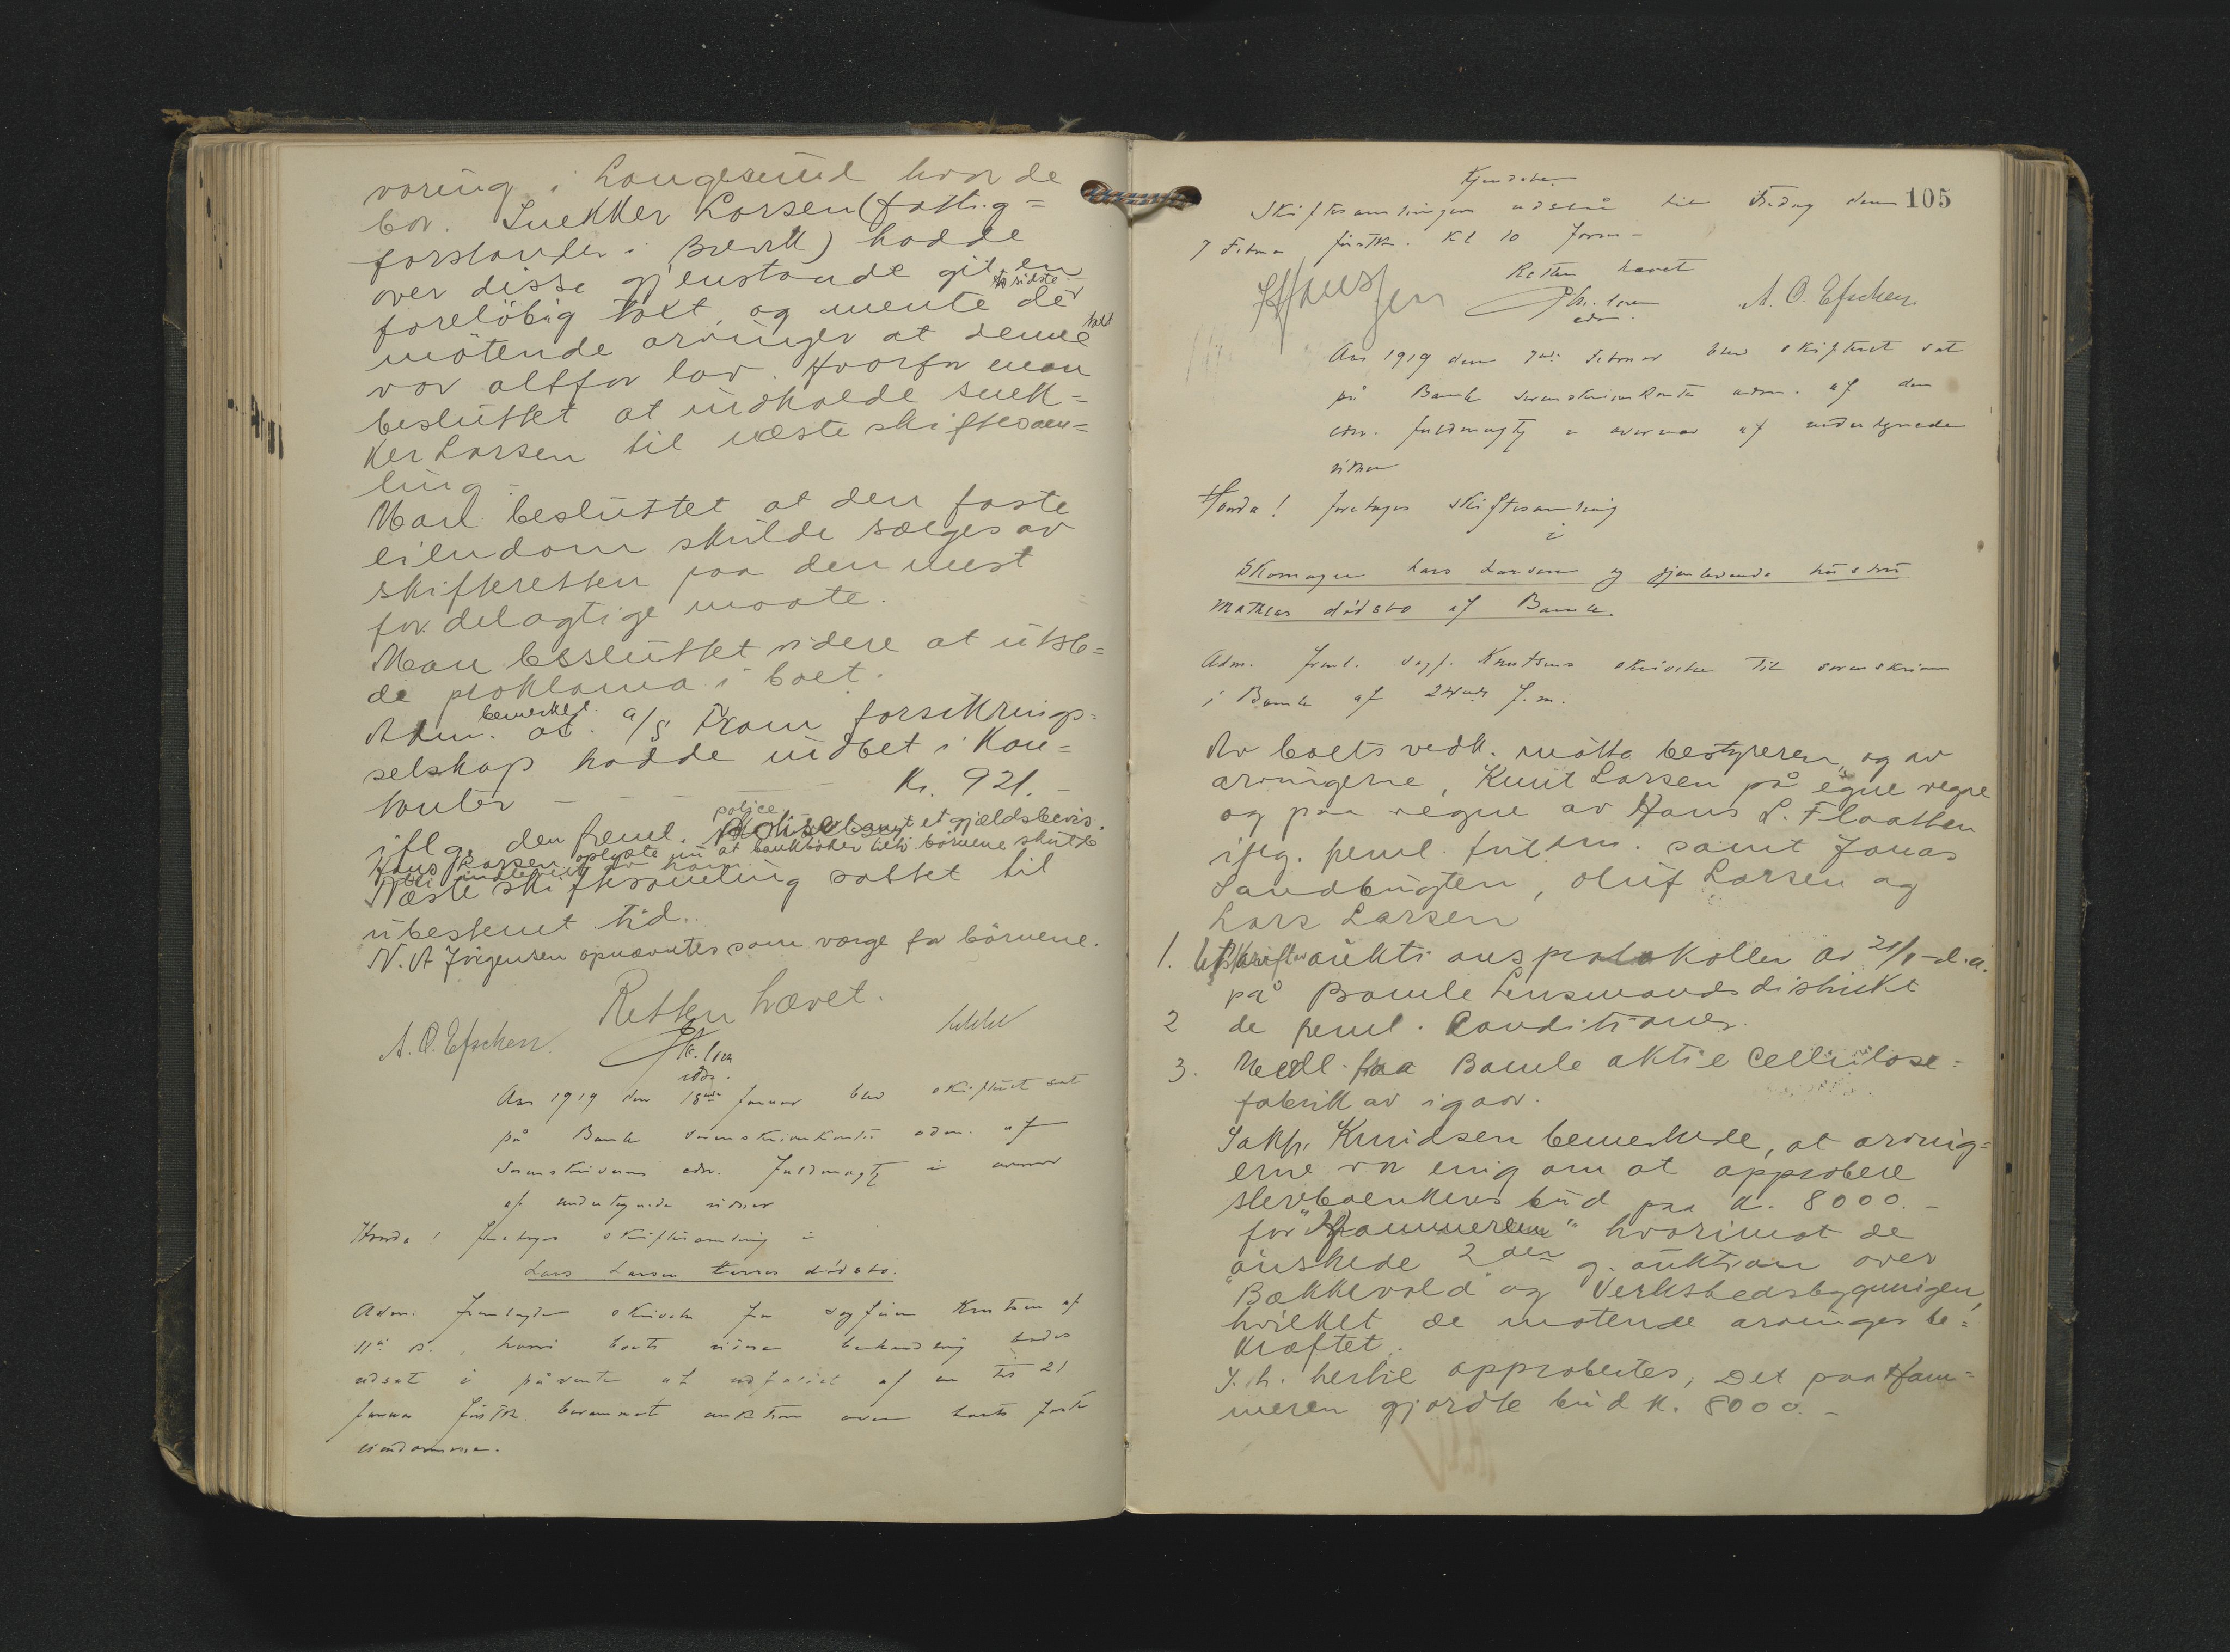 varing i Langesund hvor de
bor. Snekker Larsen (fattig=
forstander i Brevik) hadde
over disse gjenstande git en
foreløbig takt, og mente de to sidste
møtende arvinger at denne takt
var altfor lav. Hvorfor man
besluttet at indkalde snek=
ker Larsen til næste skiftesam=
ling.
Man besluttet at den faste
eiendom skulde sælges av
skifteretten paa den mest
fordelagtige maate.
Man besluttet videre at utste=
de proklama i boet.
Adm. bemerket at a/s Fram forsikrings=
selskap hadde indbet i Kon=
tanter - - - Kr. 921.-
iflg. den freml. police samt et gjældsbevis.
Hans Larsen oplyste nu at bankbøker tilh. børnene skulde
bli indleveret av ham
Næste skiftesamling sattes til
ubestemt tid.
N. A Jörgensen opnævntes som værge for børnene.
Retten hævet.
A. O. Efschen.
edsv.
Aar 1919 den 18de Januar blev skifteret sat
på Bamle sorenskriverkontor adm. af
Sorenskriverens edsv. fuldmægtig i overvær
af undertegnede vidner
Hvorda! foretoges skiftesamling i
Lars Larsen dødsbo.
Adm. fremlagde skrivelse fra sagfører Knutsen af
11te ds., hvori boets videre behandling bedes
udsat i påvente af udfaldet af en til 21
Januar førstk. berammet auktion over boets faste
eiendomme.
Kjendelse.
105
Skiftesamlingen udståe til Fredag den
7 Februar førstk. Kl 10 Form-
Retten hævet
A. O. Efschen
edsv.
Aar 1919 den 7de Februar blev skifteret sat
på Bamle sorenskriverkontor adm. af den
edsv. fuldmægtig i overvær af undertegnede
vidner
Hvorda! foretoges skiftesamling
i
Skomager Lars Larsen og gjenlevende hustru
Matheas dødsbo af Bamle.
Adm. freml. sagf. Knutsens skrivelse til sorenskriveren
i Bamle af f. m.
Av boets vedk. møtte bestyreren, og av
arvingerne, Knut Larsen på egne vegne
og paa vegne av Hans L. Flaatten
iflg. freml. fuldm. samt Jonas
Sandbugten, Oluf Larsen og
Lars Larsen
1. Utskrift av auktionsprotokollen av 21/1 d. a.
på Bamle Lensmandsdistrikt
2 de freml. Conditioner.
3. Meddl. fra Bamle aktie Cellulose=
fabrik av igaar.
Sakfr. Knudsen bemerkede, at arving=
erne var enig om at approbere
stervboenkens bud paa K. 8000.-
for "Hammeren" hvorimot de
ønskede 2den g. auktion over
"Bækkevold" og Verkstedsbygningen,
hvilket de møtende arvinger be=
kræftet.
I. h. hertil approbertes, Det paa Ham=
meren gjordte bud K. 8000.-